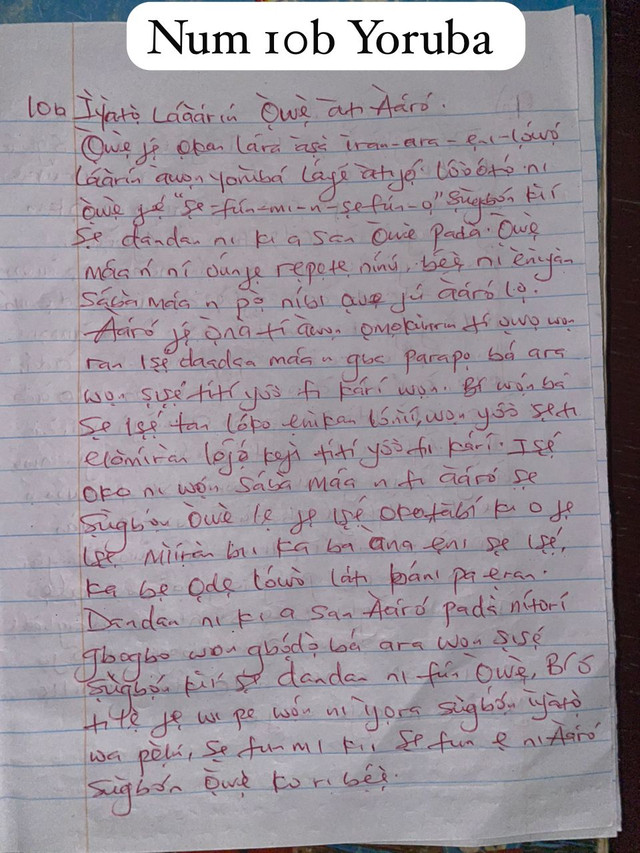 Num 10b Yoruba
10b Ìyàtọ̀ Láàárín Ọ̀wẹ̀ àti Àáró.
Ọ̀wẹ̀ jẹ́ ọkan lára àṣà ìran-ara-ẹni-lọ́wọ́
láàrín àwọn yorùbá láyé àtijọ́ lóòótọ́ ni
ọ̀wẹ̀ jẹ́ "Ṣe-fún-mi-n-ṣefún-ọ" Ṣùgbọ́n kìí
Ṣe dandan ni kí a san Ọ̀wẹ̀ padà. Ọ̀wẹ̀
máa ń ní óúnjẹ repete nínú, bẹ́ẹ̀ ni ènìyàn
Sábà máa ń pọ̀ níbi ọwẹ jú ààró lọ.
Ààró jẹ́ ọ̀nà tí àwọn ọmọkùnrin tí ọwọ wọn
ran Iṣẹ́ daadaa máa n gbe parapọ bá ara
wọn ṣiṣẹ́ títí yóò fi kárí wọn. Bí wọ́n bá
Ṣe Iṣẹ́ tan lóko ẹnìkan lónìí, wọn yóò ṣe ti
elòmíràn lọ́jọ́ kejì títí yóò fi kárí. Iṣẹ́
oko ni wọ́n Sábà máa ń fi ààró ṣe
Ṣùgbọ́n Ọ̀wẹ̀ lè jẹ Iṣẹ́ oko tàbí kí o jẹ
Iṣẹ́ Mìíràn bíi ka bá àna ẹni ṣe Iṣẹ́,
ka bẹ ọdẹ lọ́wọ̀ láti báni pa ẹran.
Dandan ni kí a san Ààró padà nítorí
gbogbo wọn gbọ́dọ̀ bá ara wọn ṣiṣẹ́
Ṣùgbọ́n kìí ṣe dandan ni fún Ọ̀wẹ̀, Bí ó
tilẹ̀ jẹ wí pe wọ́n ni ìyọra ṣùgbọ́n ìyàtọ̀
wa pẹ̀lú, ṣe fun mi kii ṣe fun ẹ ni Ààró
Ṣùgbọ́n Ọ̀wẹ̀ ko ri bẹ́ẹ̀.